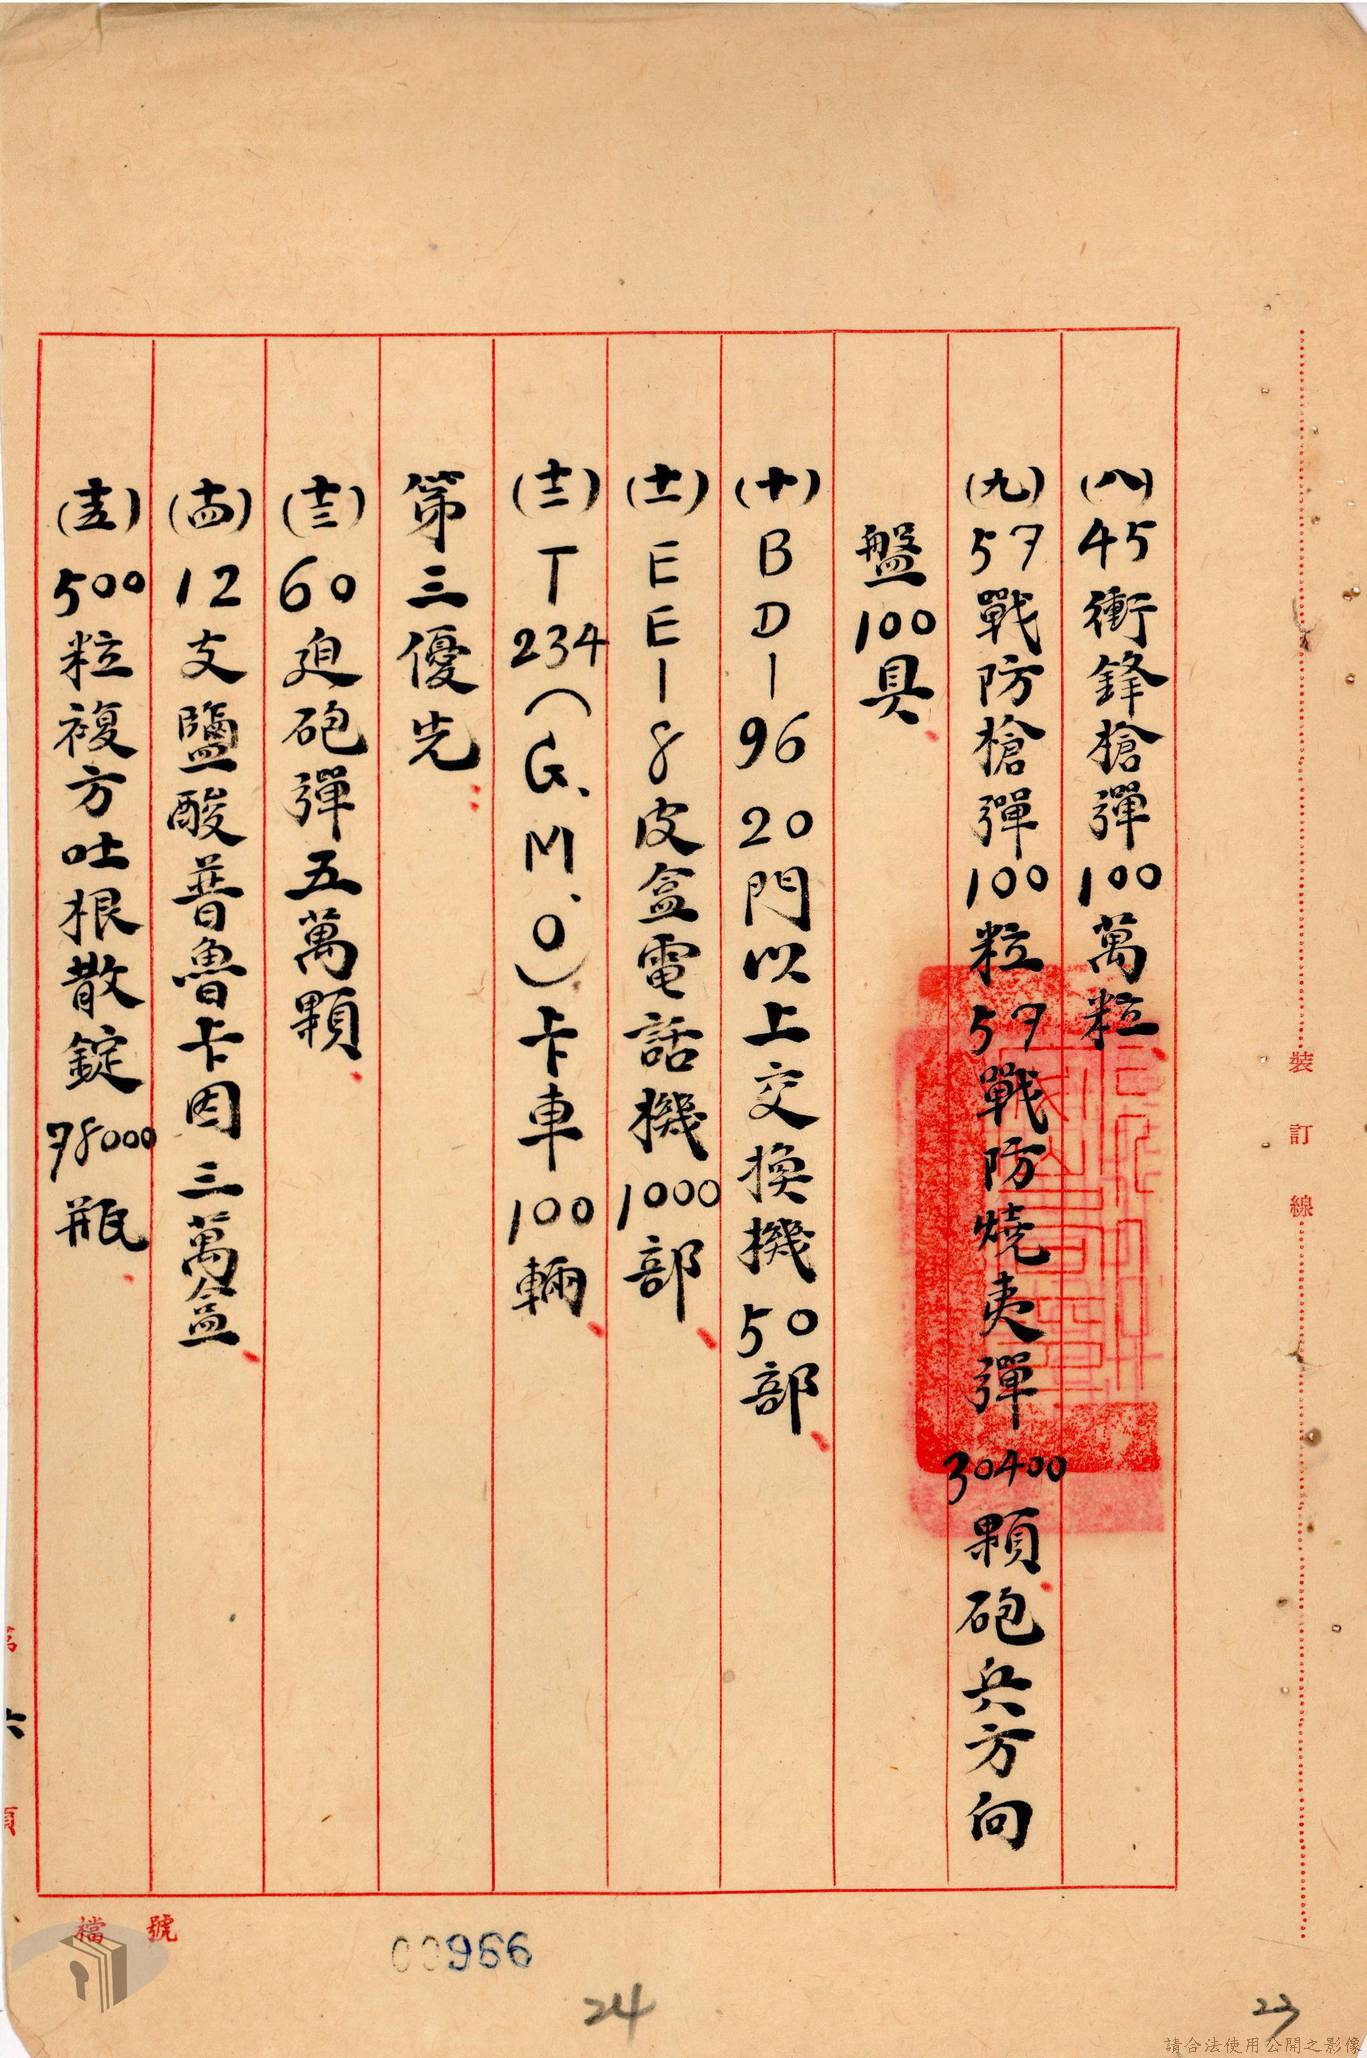 裝訂線
(八)45衝鋒槍彈100萬粒
(九)57戰防槍彈100粒57戰防燒夷彈30400顆砲兵方向
盤100具
(十)BD-96 20門以上交換機50部
(十一)EE-8皮盒電話機1000部
(十二)T234(G.M.O)卡車100輛
第三優先：
(十三)60迫砲彈五萬顆
(十四)12支鹽酸普魯卡因三萬盒
(十五)500粒複方吐根散錠78000瓶
六
檔號
00966
24
23
請合法使用公開之影像